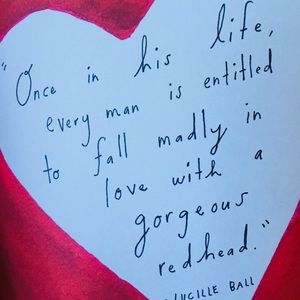 "Once in his life,
every man is entitled
to fall madly in
love with a
gorgeous
redhead."
LUCILLE BALL